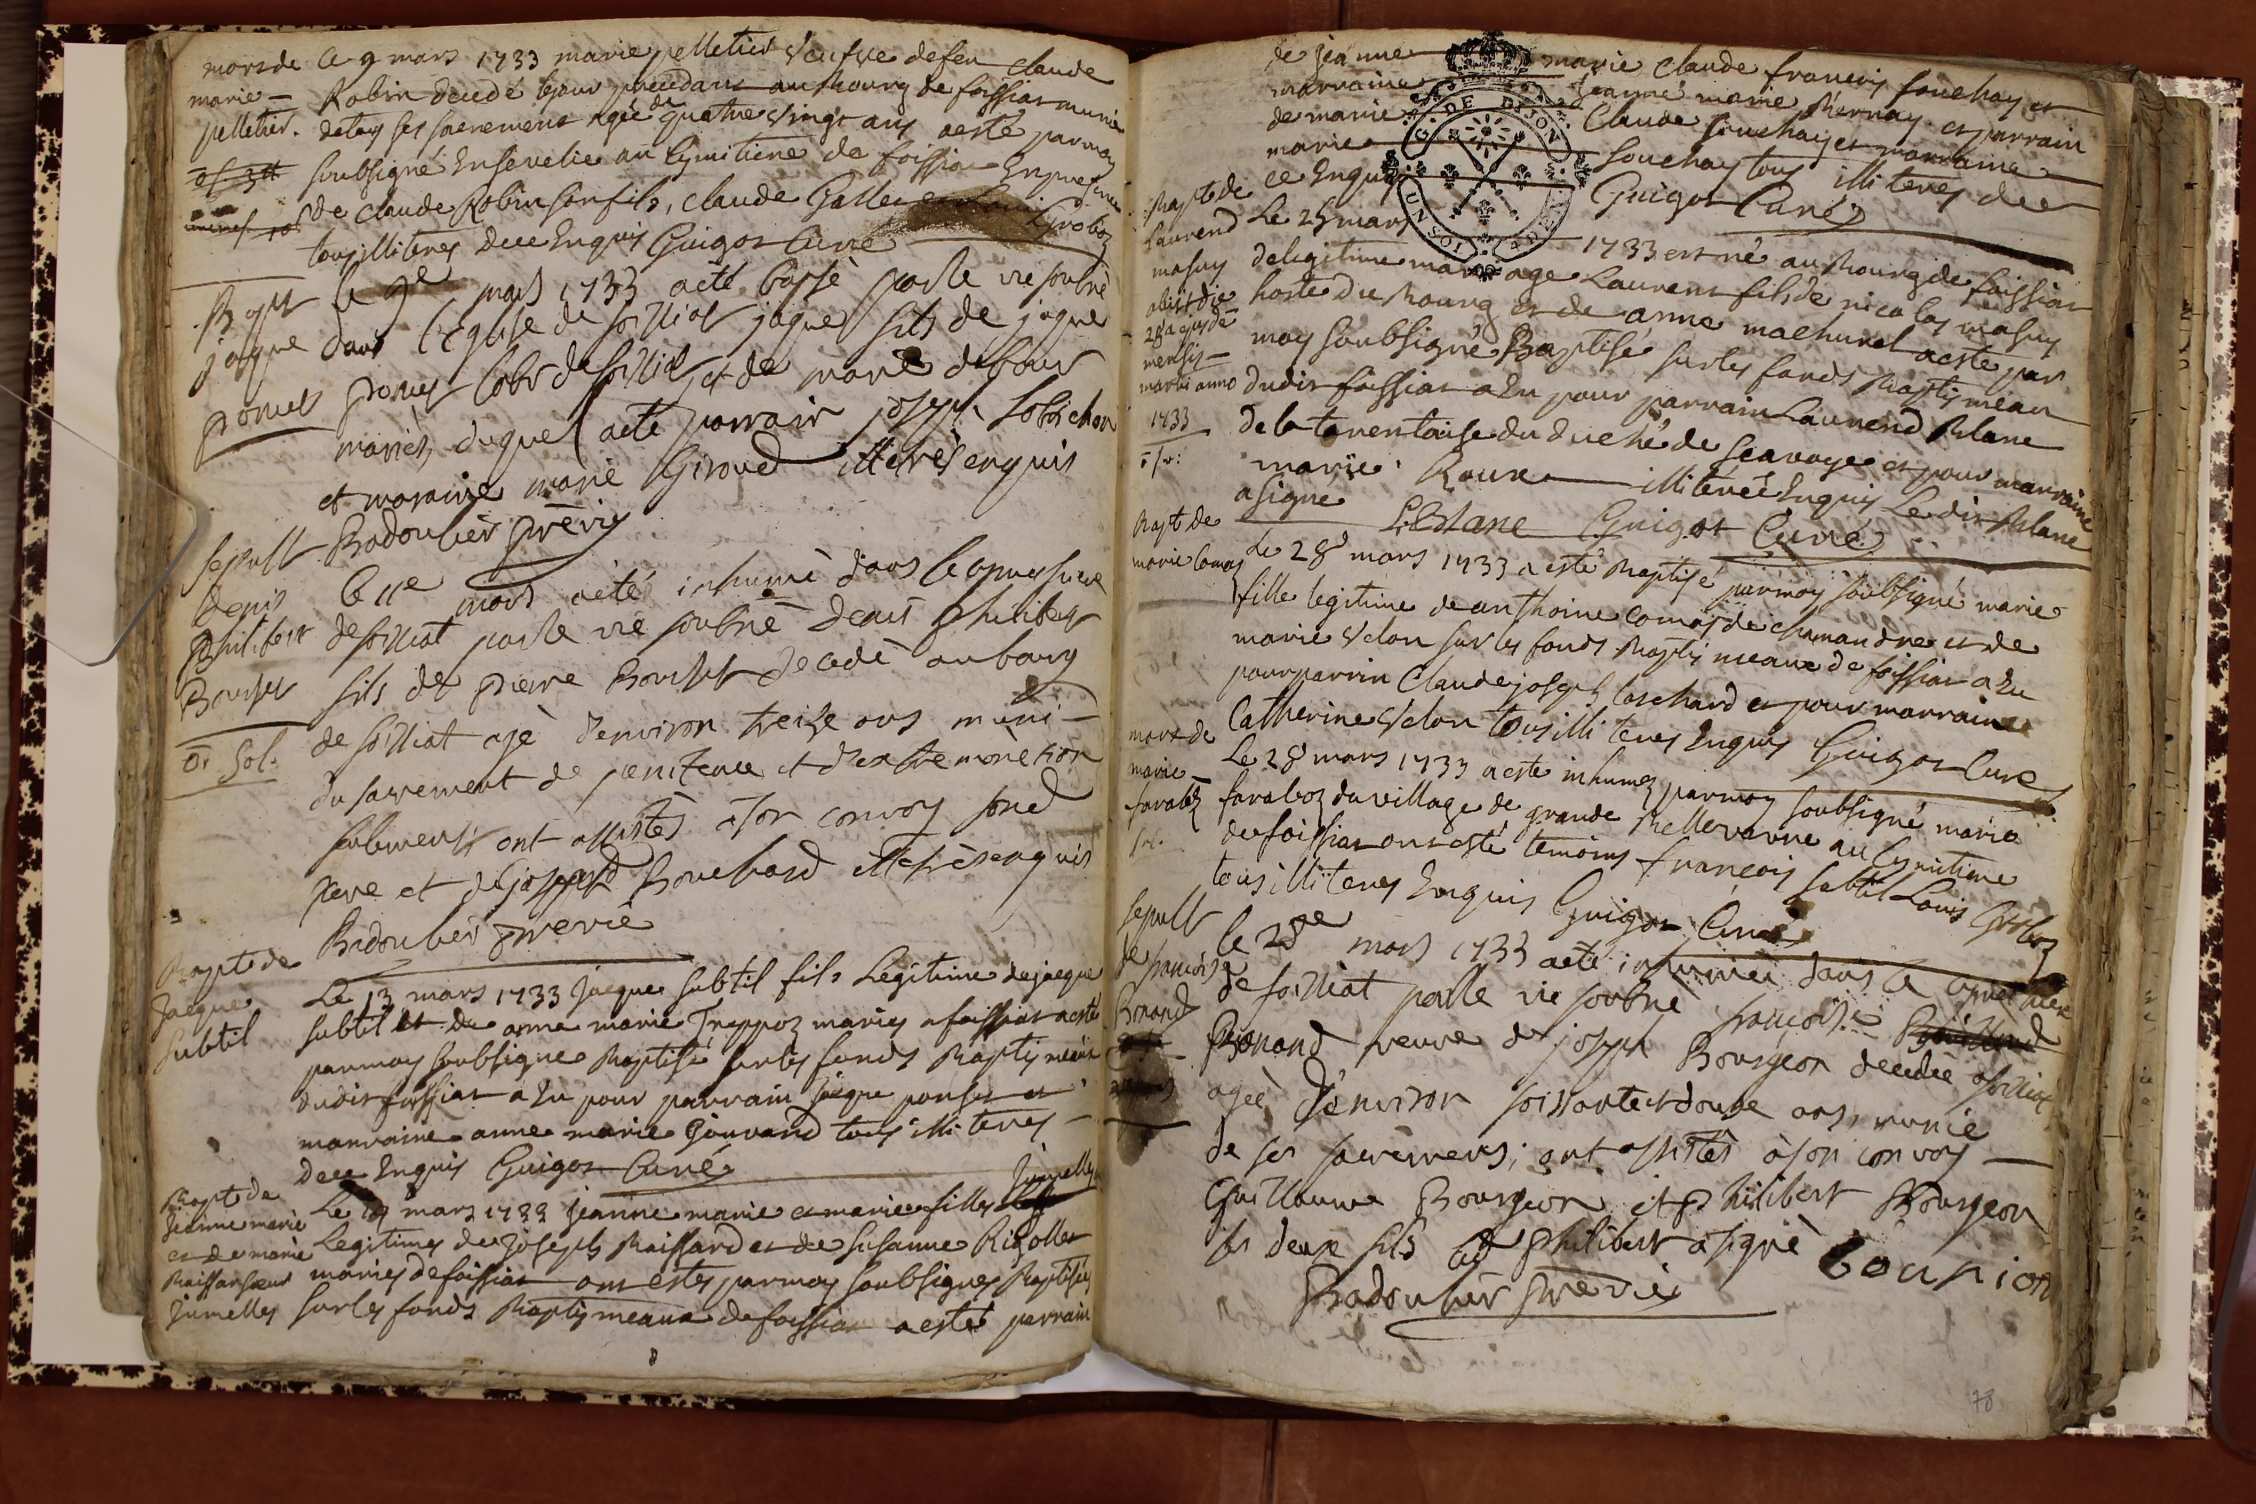 mort de
marie
pelletier.
ce 9 mars 1733 marie pelletier veufve de feu claude
Robin decedé le jour precedant au bourg de foissiat munie
de tous ses sacremens agée de quatre vingt ans a esté par moy
soubsigné Ensevelie au Cymitiere de foissiat En presence
de Claude Robin son fils, claude Gallet et Louis Groboz
tous illiterés de ce Enquis Guigot Curé
Bapt
jaque
poncet
le 9e mars 1733 a eté bassé par le vie soubné
dans l'eglise de foissiat jaque fils de jaque
poncet labr de foissiat et de marie dufour
mariés, duquel a eté parrain joseph Lobrichon
et maraine marie Giroud illiterés enquis
Badoulier prevé
sepult
Denis
Philibert
Bouchet
Or Sol.
le 11e mars a eté inhumé dans le cymetiere
de foissiat par le vie soubné Denis philibert
fils de pierre Bouchet decedé au bourg
de foissiat agé d'environ treize ans muni
du sacrement de penitence et d'extreme onction
seulement, ont assistés a son convoy son d
pere et de gaspard Bouchard illiterés enquis
Badoulier prevé
Bapt de
Jacque
subtil
Le 13 mars 1733 Jacque subtil fils Legitime de jacque
subtil et de anne marie Treppoz mariés a foissiat a esté
par moy soubsigné Baptisé sur les fonds Baptismeaux
dudit foissiat a Eu pour parrain Jaque poncet et
marraine anne marie Gouvand tous illiterés
de ce Enquis Guigot Curé
Bapt de
Jeanne marie
et de marie
Raissard sœurs
Jumelles
Le mars 1733 Jeanne marie et marie filles Jumelles
Legitimes de Joseph Raissard et de Susanne Rigollet
mariés de foissiat ont estés par moy soubsigné Baptisées
sur les fonds Baptismeaux de foissiat a esté parrain
de jeanne marie Claude francois souchay et
marraine Jeanne marie Pernay et parrain
de marie Claude souchay et marraine
marie souchay tous illiterés de
ce Enquis Guigot Curé
G. DE DIJON
Bapt de
Laurend
masuy
obiit die
28a ejusdem
mensis
martii anno
1733
Le 25 mars 1733 est né au bourg de foissiat
de legitime mariage Laurent fils de nicolas masuy
hoste du bourg et de anne machurel a esté par
moy soubsigné Baptisé sur les fonds Baptismeau
dudit foissiat a Eu pour parrain Laurend Blanc
de la tarentaise du duché de scavoye et pour marraine
marie Roux illiterée Enquis Ledit Blanc
a signé L Blanc Guigot Curé
Bapt de
marie comas
Le 28 mars 1733 a esté Baptisé par moy soubsigné marie
fille legitime de anthoine comas de chamandre et de
marie velon sur les fonds Baptismeaux de foissiat a Eu
pour parrin Claude joseph bochard et pour marraine
Catherine velon tous illiterés Enquis Guigot Curé
mort de
marie
favaboz
Le 28 mars 1733 a esté inhumez par moy soubsigné marie
favaboz du village de grande Bellevavre au Cymitiere
de foissiat ont esté temoins francois subtil Louis Groboz
tous illiterés Enquis Guigot Curé
sepult
de francoise
Bonand
le 28e mars 1733 a eté inhumée dans le cymetiere
de foissiat par le vie soubné francoise
Bonand veuve de joseph Bourgeon decedée a foissiat
agée d'environ soissante et douze ans, munie
de ses sacremens; ont assistés à son convoy
Guillaume Bourgeon et Philibert Bourgeon
ses deux fils led Philibert a signé bourion
Badoulier prevé
78